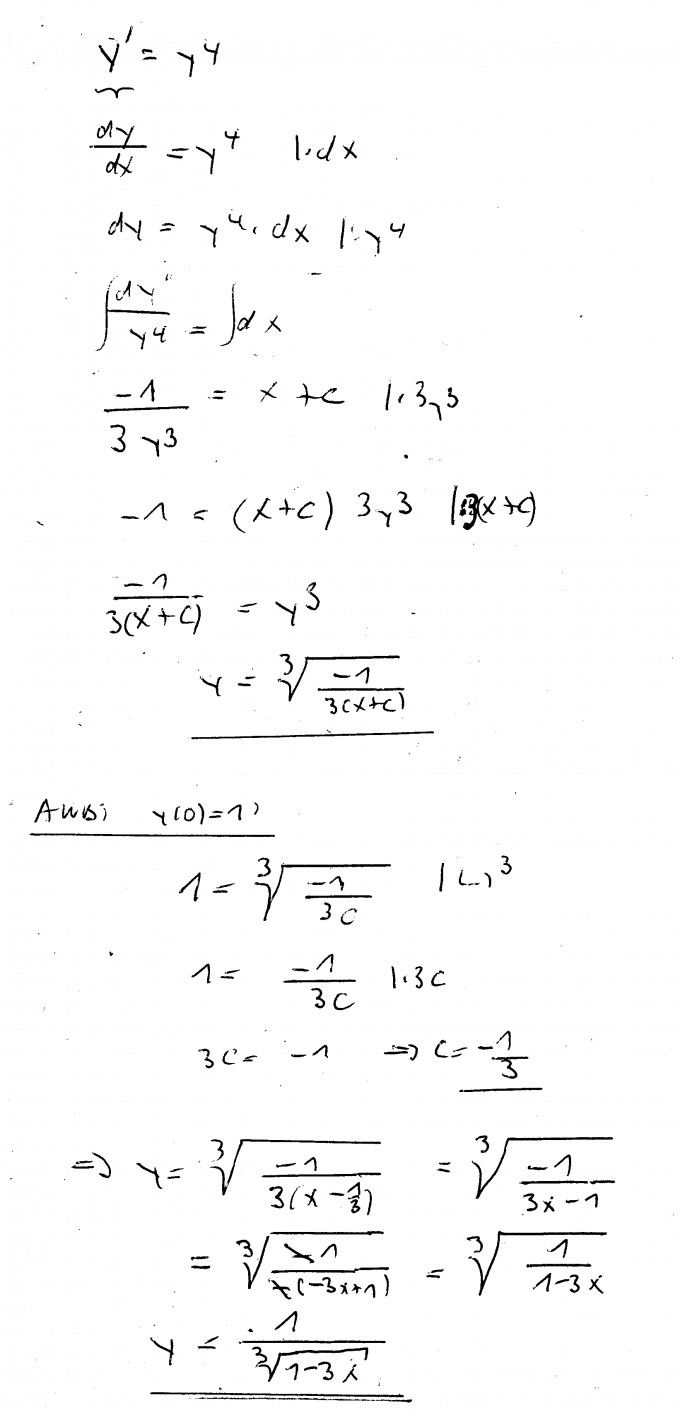 y' = y⁴
dy/dx = y⁴ |·dx
dy = y⁴·dx |:y⁴
∫dy/y⁴ = ∫dx
-1/(3y³) = x+c |·3y³
-1 = (x+c) 3y³ |:3(x+c)
-1/(3(x+c)) = y³
y = ³√(-1/(3(x+c)))
AWB: y(0)=1:
1 = ³√(-1/(3C)) |(..)³
1 = -1/(3C) |·3C
3C = -1 ⇒ C = -1/3
⇒ y = ³√(-1/(3(x-1/3))) = ³√(-1/(3x-1))
= ³√(-1/(-(-3x+1))) = ³√(1/(1-3x))
y = 1/³√(1-3x)